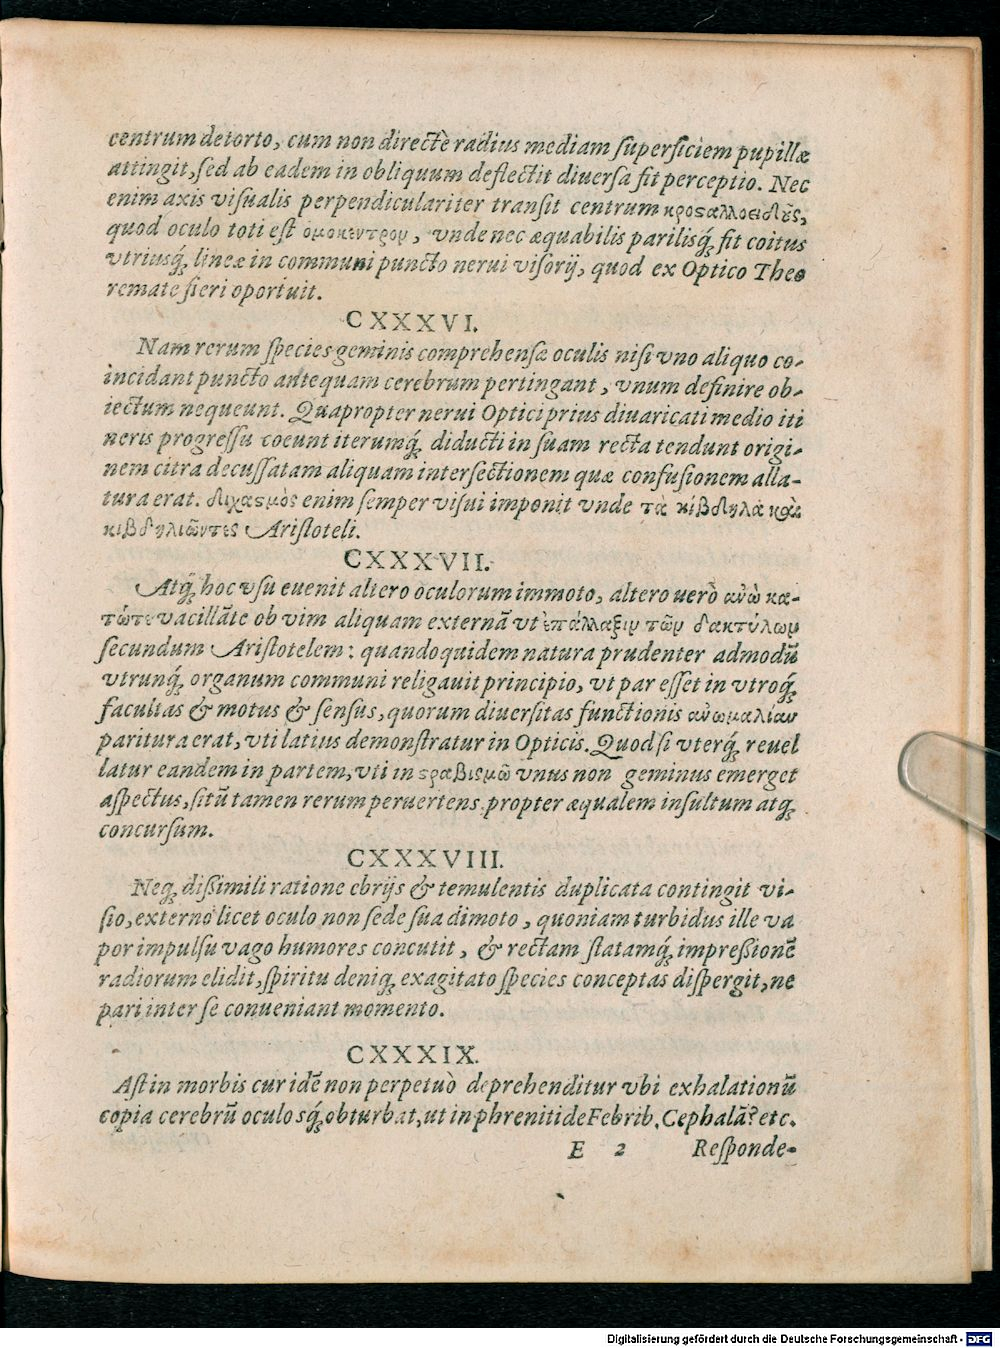 centrum detorto, cum non directè radius mediam superficiem pupillæ
attingit, sed ab eadem in obliquum deflectit diuersa fit perceptio. Nec
enim axis visualis perpendiculariter transit centrum κροςαλλοειδὲς,
quod oculo toti est ομοκεντρον, vnde nec æquabilis parilisq́; fit coitus
vtriusq́; lineæ in communi puncto nerui visorij, quod ex Optico Theo
remate fieri oportuit.
CXXXVI.
Nam rerum species geminis comprehensæ oculis nisi vno aliquo co-
incidant puncto antequam cerebrum pertingant, vnum definire ob-
iectum nequeunt. Quapropter nerui Optici prius diuaricati medio iti
neris progressu coeunt iterumq́; diducti in suam recta tendunt origi-
nem citra decussatam aliquam intersectionem quæ confusionem alla-
tura erat. διχαςμὸς enim semper visui imponit vnde τὰ κίβδηλα καὶ
κιβδηλιῶντες Aristoteli.
CXXXVII.
Atq́; hoc vsu euenit altero oculorum immoto, altero uerò ανὼ κα-
τώτε vacillãte ob vim aliquam externã vt ἐπάλλαξιν τῶν δακτύλων
secundum Aristotelem: quandoquidem natura prudenter admodũ
vtrunq́; organum communi religauit principio, vt par esset in vtroq́;
facultas & motus & sensus, quorum diuersitas functionis ανωμαλίαν
paritura erat, vti latius demonstratur in Opticis. Quod si vterq́; reuel
latur eandem in partem, vti in ςραβισμῶ vnus non geminus emerget
aspectus, sitũ tamen rerum peruertens propter æqualem insultum atq́;
concursum.
CXXXVIII.
Neq́; dißimili ratione ebrijs & temulentis duplicata contingit vi-
sio, externo licet oculo non sede sua dimoto, quoniam turbidus ille va
por impulsu vago humores concutit, & rectam statamq́; impreßionẽ
radiorum elidit, spiritu deniq́; exagitato species conceptas dispergit, ne
pari inter se conueniant momento.
CXXXIX.
Ast in morbis cur idẽ non perpetuò deprehenditur vbi exhalationũ
copia cerebrũ oculosq́; obturbat, ut in phrenitide Febrib. Cephalã? etc.
E 2 Responde-
Digitalisierung gefördert durch die Deutsche Forschungsgemeinschaft - DFG